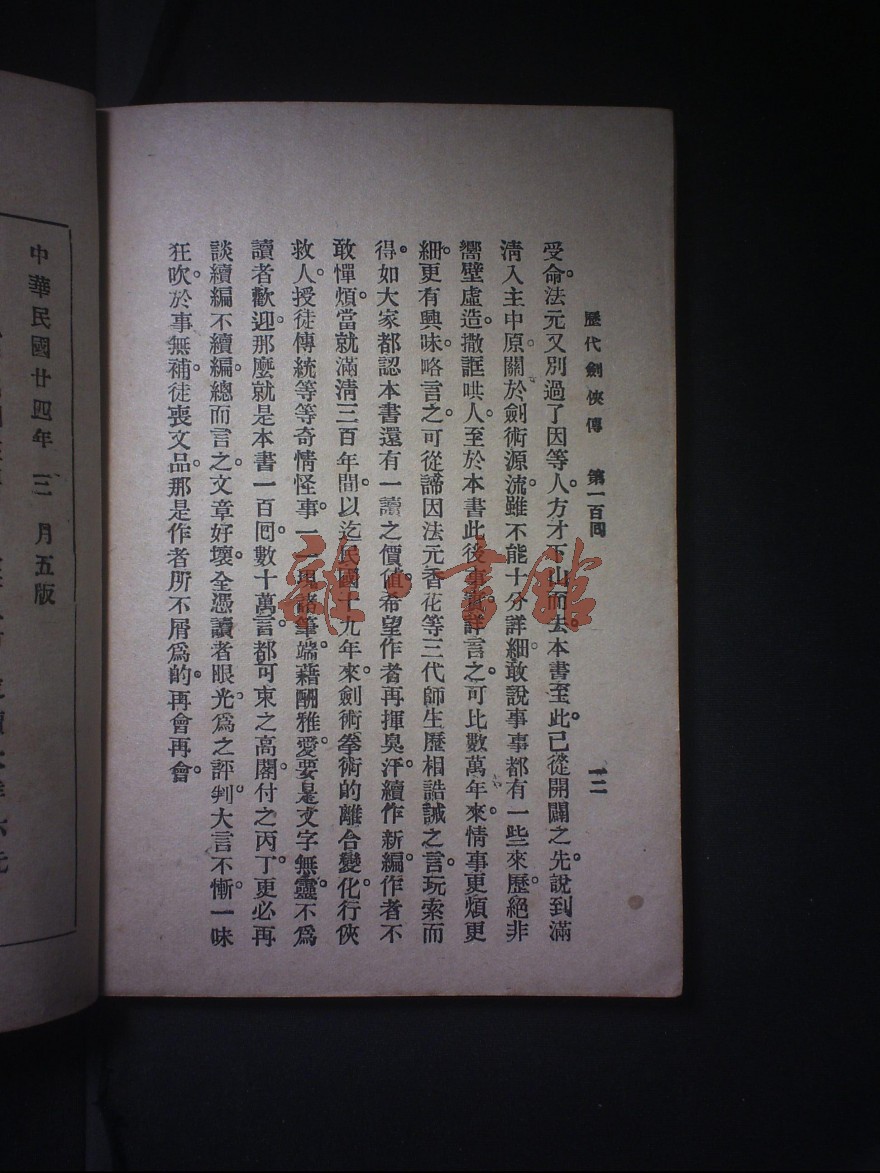 歷代劍俠傳　第一百回　一二
受命。法元又別過了因等人。方才下山而去。本書至此。已從開闢之先。說到滿
清入主中原。關於劍術源流。雖不能十分詳細。敢說事事都有一些來歷。絕非
嚮壁虛造。撒誑哄人。至於本書此後事實。詳言之。可比數萬年來。情事更煩更
細。更有興味。略言之。可從諦因法元香花等三代師生。歷相誥誡之言。玩索而
得。如大家都認本書還有一讀之價值。希望作者再揮臭汗。續作新編。作者不
敢憚煩。當就滿清三百年間。以迄民國十九年來。劍術拳術的離合變化。行俠
救人。授徒傳統等等奇情怪事。一一現諸筆端。藉酬雅愛。要是文字無靈。不爲
讀者歡迎。那麼就是本書一百回。數十萬言。都可束之高閣。付之丙丁。更必再
談續編不續編。總而言之。文章好壞。全憑讀者眼光。爲之評判。大言不慚。一味
狂吹。於事無補。徒喪文品。那是作者所不屑爲的。再會再會。
中華民國廿四年三月五版
雜·書館